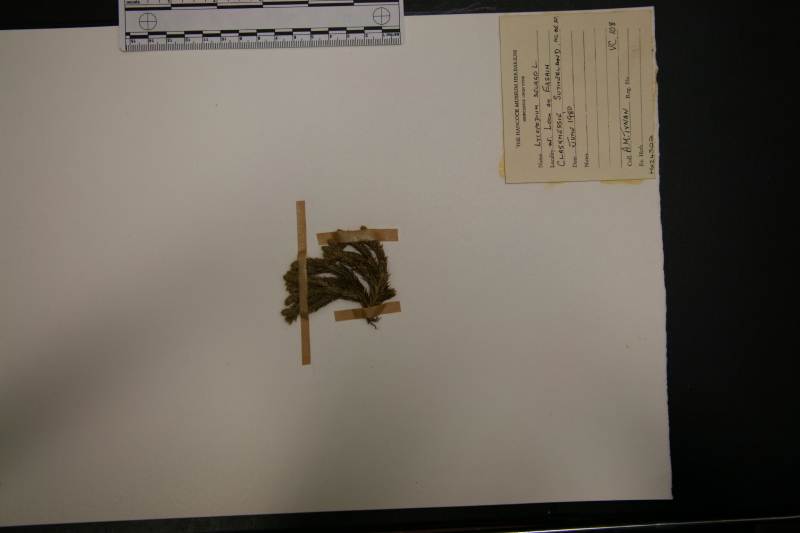 THE HANCOCK MUSEUM HERBARIUM
NEWCASTLE UPON TYNE
Name LYCOPODIUM SELAGO L.
Locality Nr LOCH AN EASAIN
CLASHNESSIE, SUTHERLAND
Date JUNE 1980
Notes
VC 108
Coll. A.M. TYNAN Reg. No.
Ex. Herb.